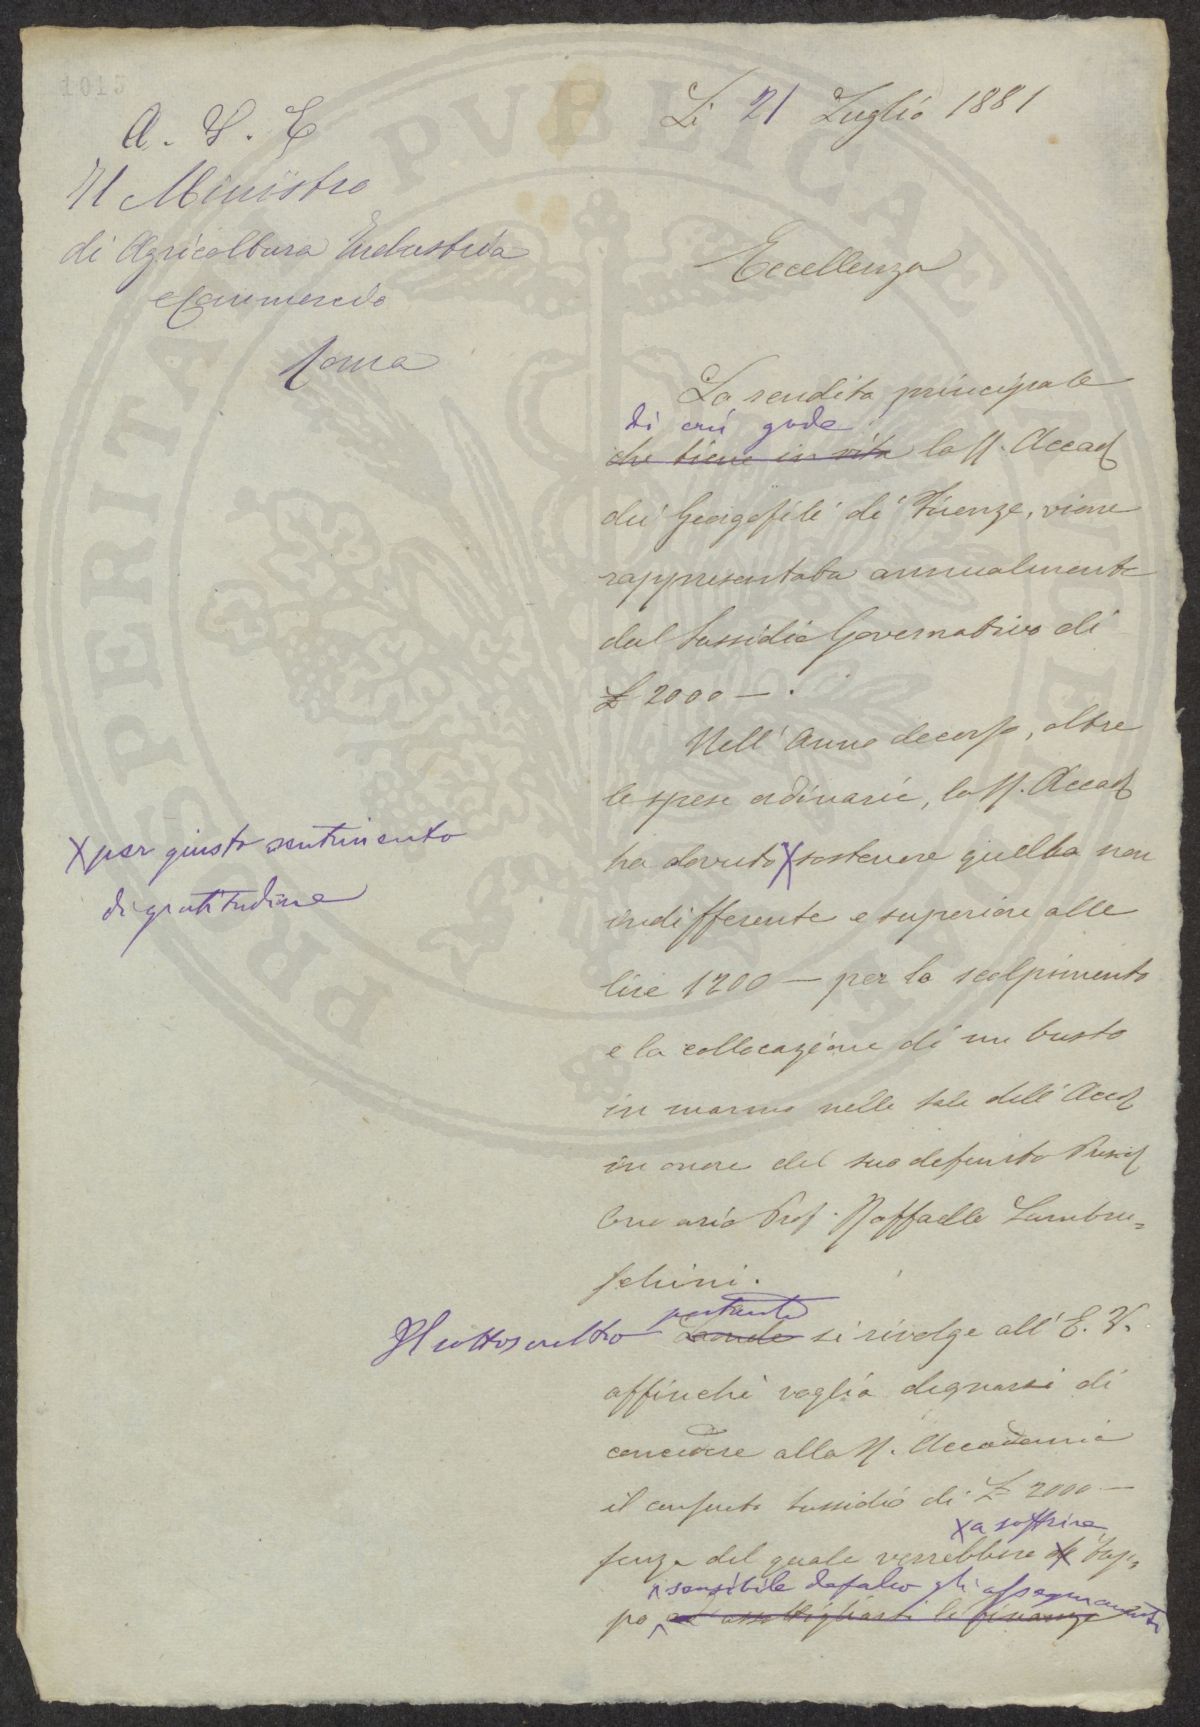 1015
Lì 21 Luglio 1881
A. S. E
Il Ministro
di Agricoltura Industria
e Commercio
Roma
Eccellenza
La rendita principale
di cui gode
che tiene in vita la R. Accad
dei Georgofili di Firenze, viene
rappresentata annualmente
dal sussidio Governativo di
£ 2000 — .
Nell' Anno decorso, oltre
le spese ordinarie, la R. Accad
ha dovuto X sostenere quella non
X per giusto sentimento
di gratitudine
indifferente e superiore alle
lire 1200 — per lo scolpimento
e la collocazione di un busto
in marmo nelle sale dell' Accad
in onore del suo defunto Presid
Onorario Prof. Raffaello Lambru=
schini.
Il sottoscritto pertanto
Laonde si rivolge all' E. V.
affinchè voglia degnarsi di
concedere alla R. Accademia
il consueto sussidio di £ 2000 —
X a soffrire
senza del quale verrebbero X trop=
sensibile defalco gli assegnamenti
po ad assottigliarsi le finanze
PROSPERITATI PVBLICAE AVGENDAE